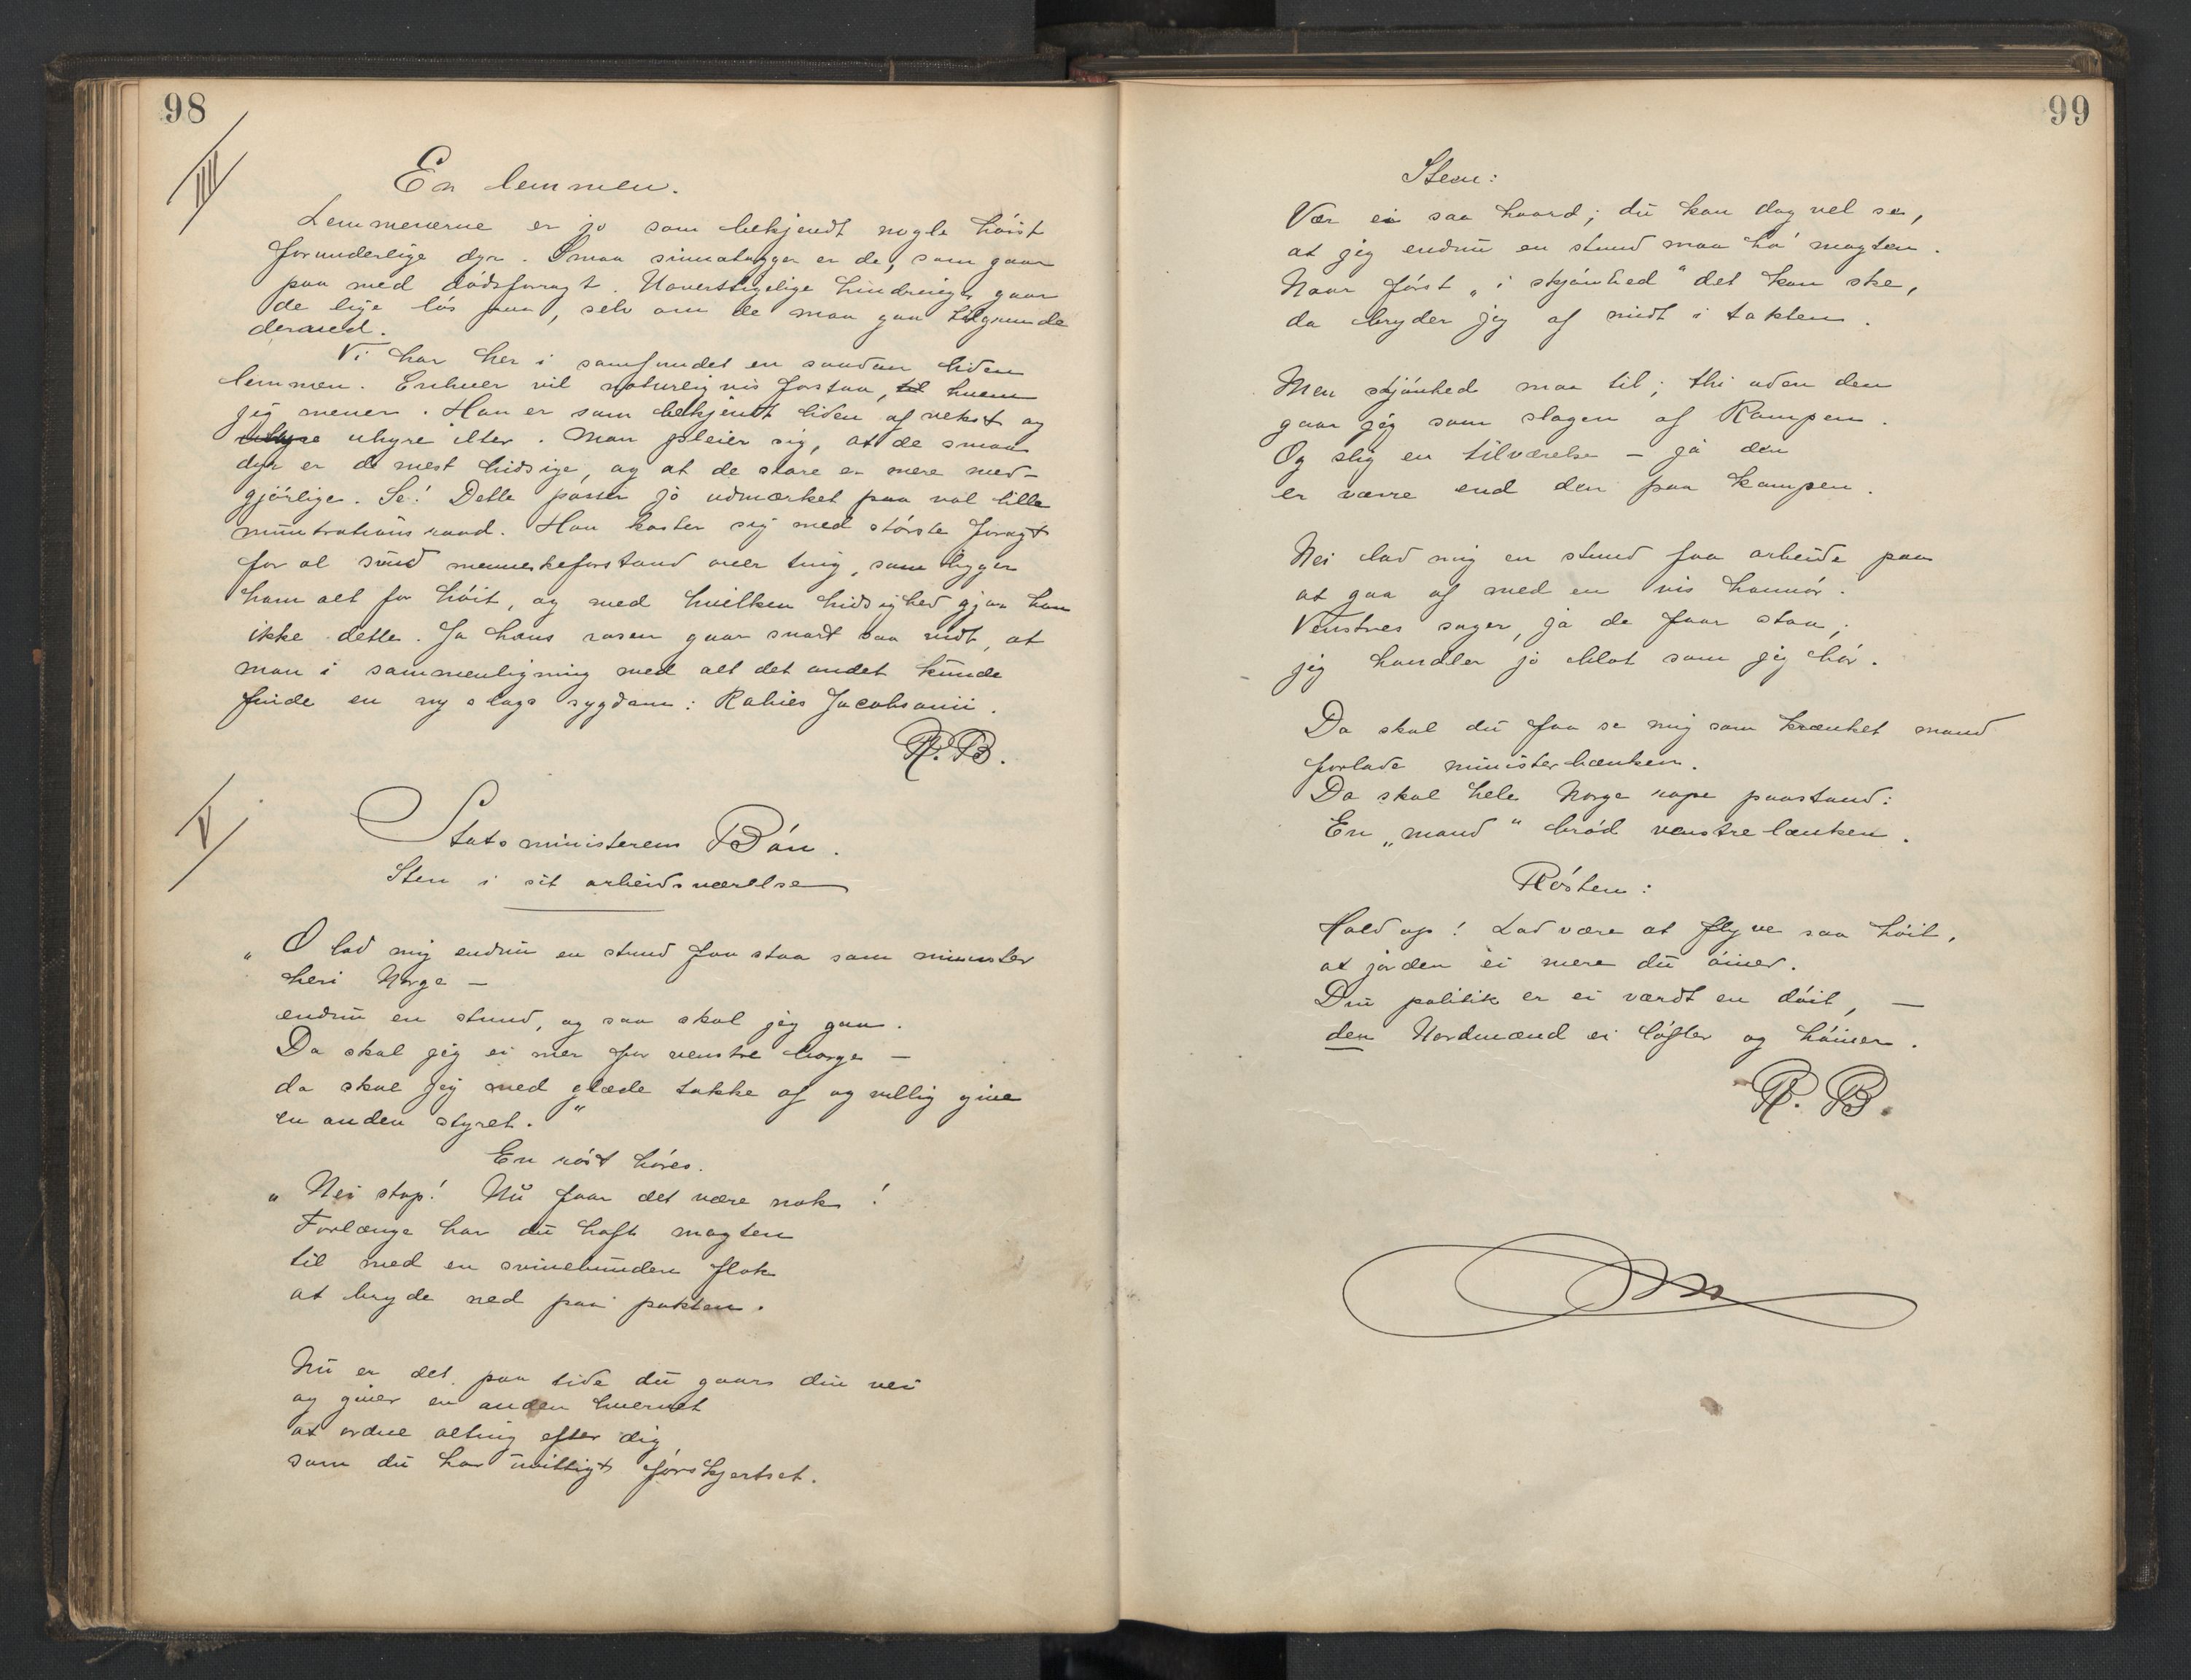 98
III
En lemmen.
Lemmenerne er jo som bekjendt nogle höist
forunderlige dyr. Smaa sinnatagger er de, som gaar
paa med dödsforagt. Uoverstigelige hindringer gaar
de lige lös paa, selv om de maa gaa tilgrunde
dermed.
Vi har her i samfundet en saadan liden
lemmen. Enhver vil naturligvis forstaa, til hvem
jeg mener. Han er som bekjendt liden af vekst og
uhyre ilter. Man pleier sig, at de smaa
dyr er de mest hidsige, og at de store er mere med-
gjörlige. Se! Dette passer jo udmærket paa vol lille
raad. Han kaster sig med störste foragt
for al sund menneskeforstand over ting, som ligger
ham alt for höit, og med hvilken hidsighed gjör han
ikke dette. Ja hans rasen gaar snart saa vidt, at
man i sammenligning med alt det andet kunde
finde en ny slags sygdom: Rabies Jacobsonii.
R. B.
V
Statsministerens Bön.
Sten i sit arbeidsværelse
„O lad mig endnu en stund faa staa som minister
her i Norge –
endnu en stund, og saa skal jeg gaa.
Da skal jeg ei mer for venstre borge –
da skal jeg med glæde takke af og villig give
en anden styret."
En röst höres.
„Nei stop! Nu faar det være nok!
Forlænge har du haft magten
til med en svinebunden flok
at bryde ned paa pakten.
Nu er det paa tide du gaar din vei
og giver en anden hvervet
at ordne alting efter dig
som du har uvittigt forskjertset.
99
Sten:
Vær ei saa haard; du kan dog vel se,
at jeg endnu en stund maa ha' magten.
Naar först „i skjönhed" det kan ske,
da bryder jeg af midt i takten.
Men skjönhed maa til; thi uden den
gaar jeg som slagen af Kampen.
Og slig en tilværelse – ja den
er værre end den paa kampen.
Nei lad mig en stund faa arbeide paa
at gaa af med en vis honnör.
Venstres sager, ja de faar staa;
jeg handler jo blot som jeg bör.
Da skal du faa se mig som krænket mand
forlade ministerbænken.
Da skal hele Norge rope paastand:
En „mand" bröd venstrelænken.
Rösten:
Hold op! Lad være at flyve saa höit,
at jorden ei mere du öiner.
Din politik er ei værdt en döit, –
den Nordmænd ei löfter og höiner.
R. B.